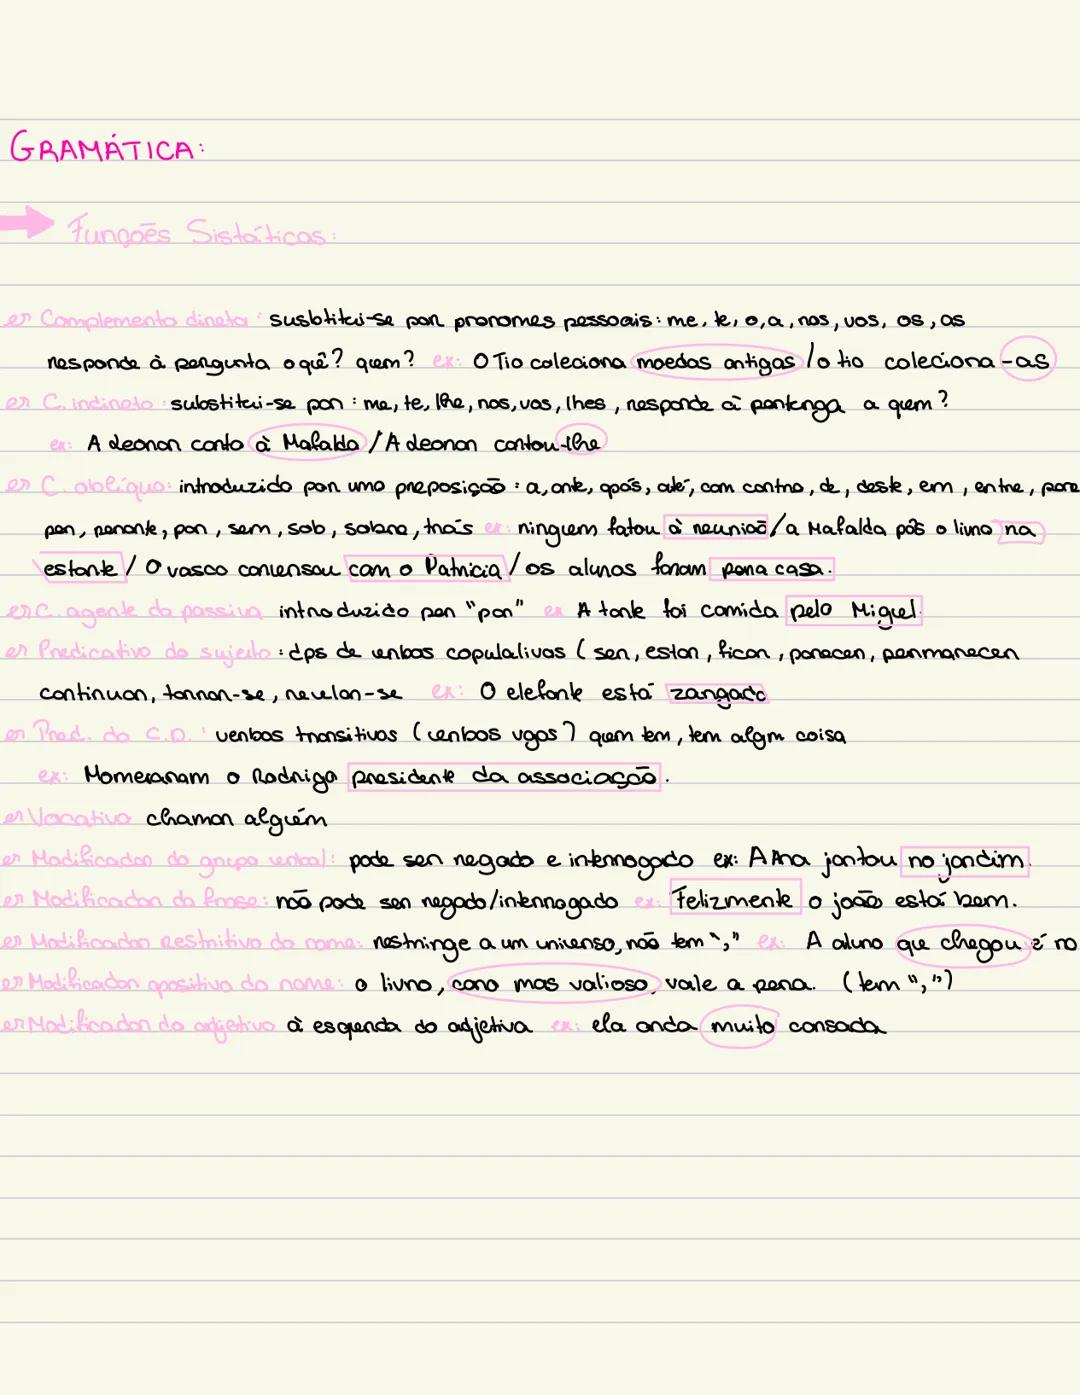 GRAMÁTICA:
Funções Sistáticas:
Complemento direto: susbtitui-se por pronomes pessoais: me, te, o, a, nos, vos, os, as
responde à pergunta o quê? quem? ex: O Tio coleciona moedas antigas / o tio coleciona-as
C. indireto: substitui-se por: me, te, lhe, nos, vos, lhes, responde à a quem?
ex: A Leonor conto à Mafalda / A Leonor contou-lhe
C. oblíquo: introduzido por uma preposição: a, ante, após, até, com contra, de, deste, em, entre, para
per, perante, por, sem, sob, sobre, trás ex: ninguem faltou à reunião / a Mafalda pôs o livro na
estante / O vasco conversou com o Patricia / os alunos foram para casa.
C. agente da passiva introduzido por "por" ex A tarte foi comida pelo Miguel.
Predicativo do sujeito: dps de verbos copulativos (ser, estar, ficar, parecer, permanecer
continuar, tornar-se, revelar-se ex: O elefante está zangado
Pred. do C.D.: verbos transitivos (verbos vgos?) quem tem, tem algm coisa
ex: Nomearam o Rodrigo presidente da associação.
Vocativo chamar alguém
Modificador do grupo verbal: pode ser negado e interrogado ex: A Ana jantou no jardim.
Modificador da frase: não pode ser negado/interrogado ex: Felizmente o joão está bem.
Modificador Restritivo do nome: restringe a um universo, não tem "," ex: A aluno que chegou é ro
Modificador apositivo do nome: o livro, caro mas valioso, vale a pena. (tem ",")
Modificador do adjetivo à esquerda do adjetiva ex: ela anda muito cansada